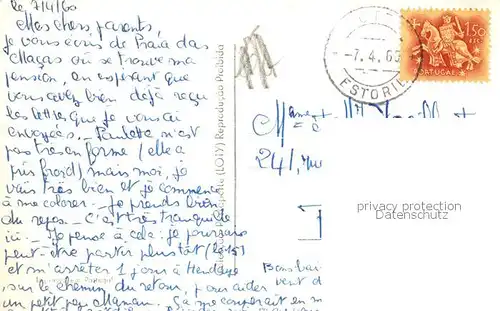 le 7/4/60
Mes chers parents,
je vous écris de Praia das
Maçãs où se trouve ma
pension, en espérant que
vous avez bien déjà reçu
les lettres que je vous ai
envoyées. - Paulette n'est
pas très en forme (elle a
pris froid) mais moi, je
vais très bien et je commence
à me colorer. - Je prends bien
du repos. - C'est très tranquille
ici. - Je pense à cela : je pourrais
peut-être partir plus tôt (le 15)
et m'arrêter 1 jour à Hendaye
sur le chemin du retour, pour aider
un petit peu Maman. Ça me couperait en
Bons bai
vent d
(LOTY) Reprodução Proibida
-7. 4. 60
ESTORIL
1$50
PORTUGAL
M
24,
privacy protection
Datenschutz